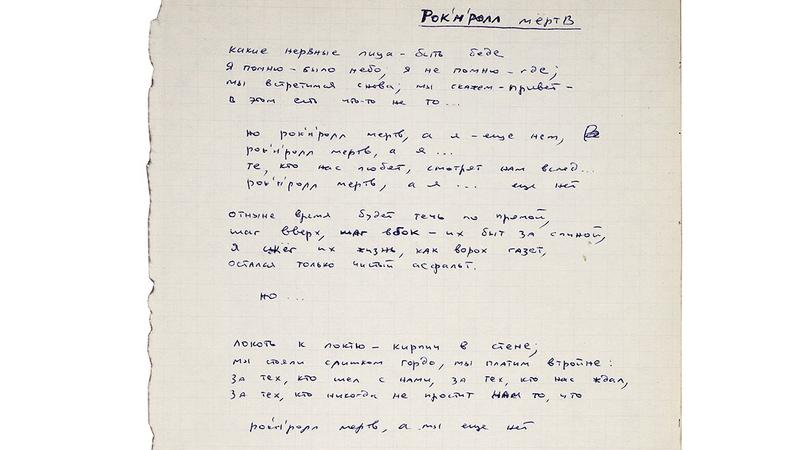 Рок'н'ролл мертв
какие нервные лица – быть беде
Я помню – было небо, я не помню – где;
мы встретимся снова; мы скажем – привет –
в этом есть что-то не то...
но рок'н'ролл мертв, а я – еще нет,
рок'н'ролл мертв, а я ...
те, кто нас любят, смотрят нам вслед...
рок'н'ролл мертв, а я ... еще нет
отныне время будет течь по прямой,
шаг вверх, шаг вбок – их быт за спиной,
Я сжег их жизнь, как ворох газет,
остался только чистый асфальт.
но ...
локоть к локтю – кирпич в стене;
мы стояли слишком гордо, мы платим втройне:
за тех, кто шел с нами, за тех, кто нас ждал,
за тех, кто никогда не простит нам то, что
рок'н'ролл мертв, а мы еще нет